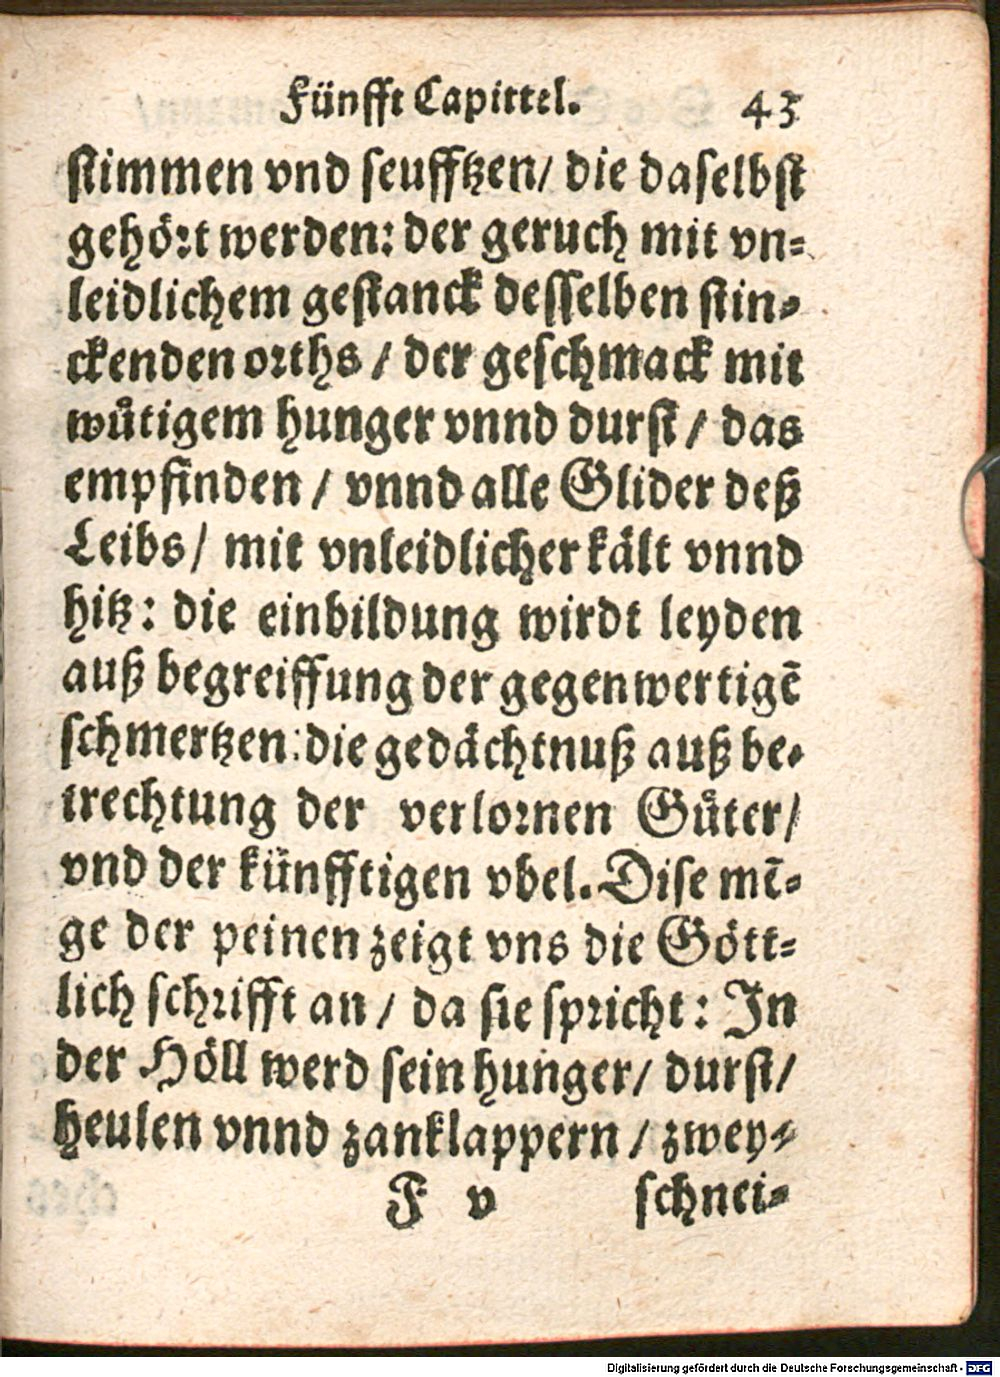 Fünfft Capittel. 43
stimmen vnd seufftzen/ die daselbst
gehört werden: der geruch mit vn-
leidlichem gestanck desselben stin-
ckenden orths / der geschmack mit
wůtigem hunger vnnd durst / das
empfinden / vnnd alle Glider deß
Leibs/ mit vnleidlicher kält vnnd
hitz: die einbildung wirdt leyden
auß begreiffung der gegenwertigē
schmertzen: die gedächtnuß auß be-
trechtung der verlornen Gůter/
vnd der künfftigen vbel. Dise mē-
ge der peinen zeigt vns die Gött-
lich schrifft an / da sie spricht: In
der Höll werd sein hunger/ durst/
heulen vnnd zanklappern / zwey-
F v schnei-
Digitalisierung gefördert durch die Deutsche Forschungsgemeinschaft - DFG